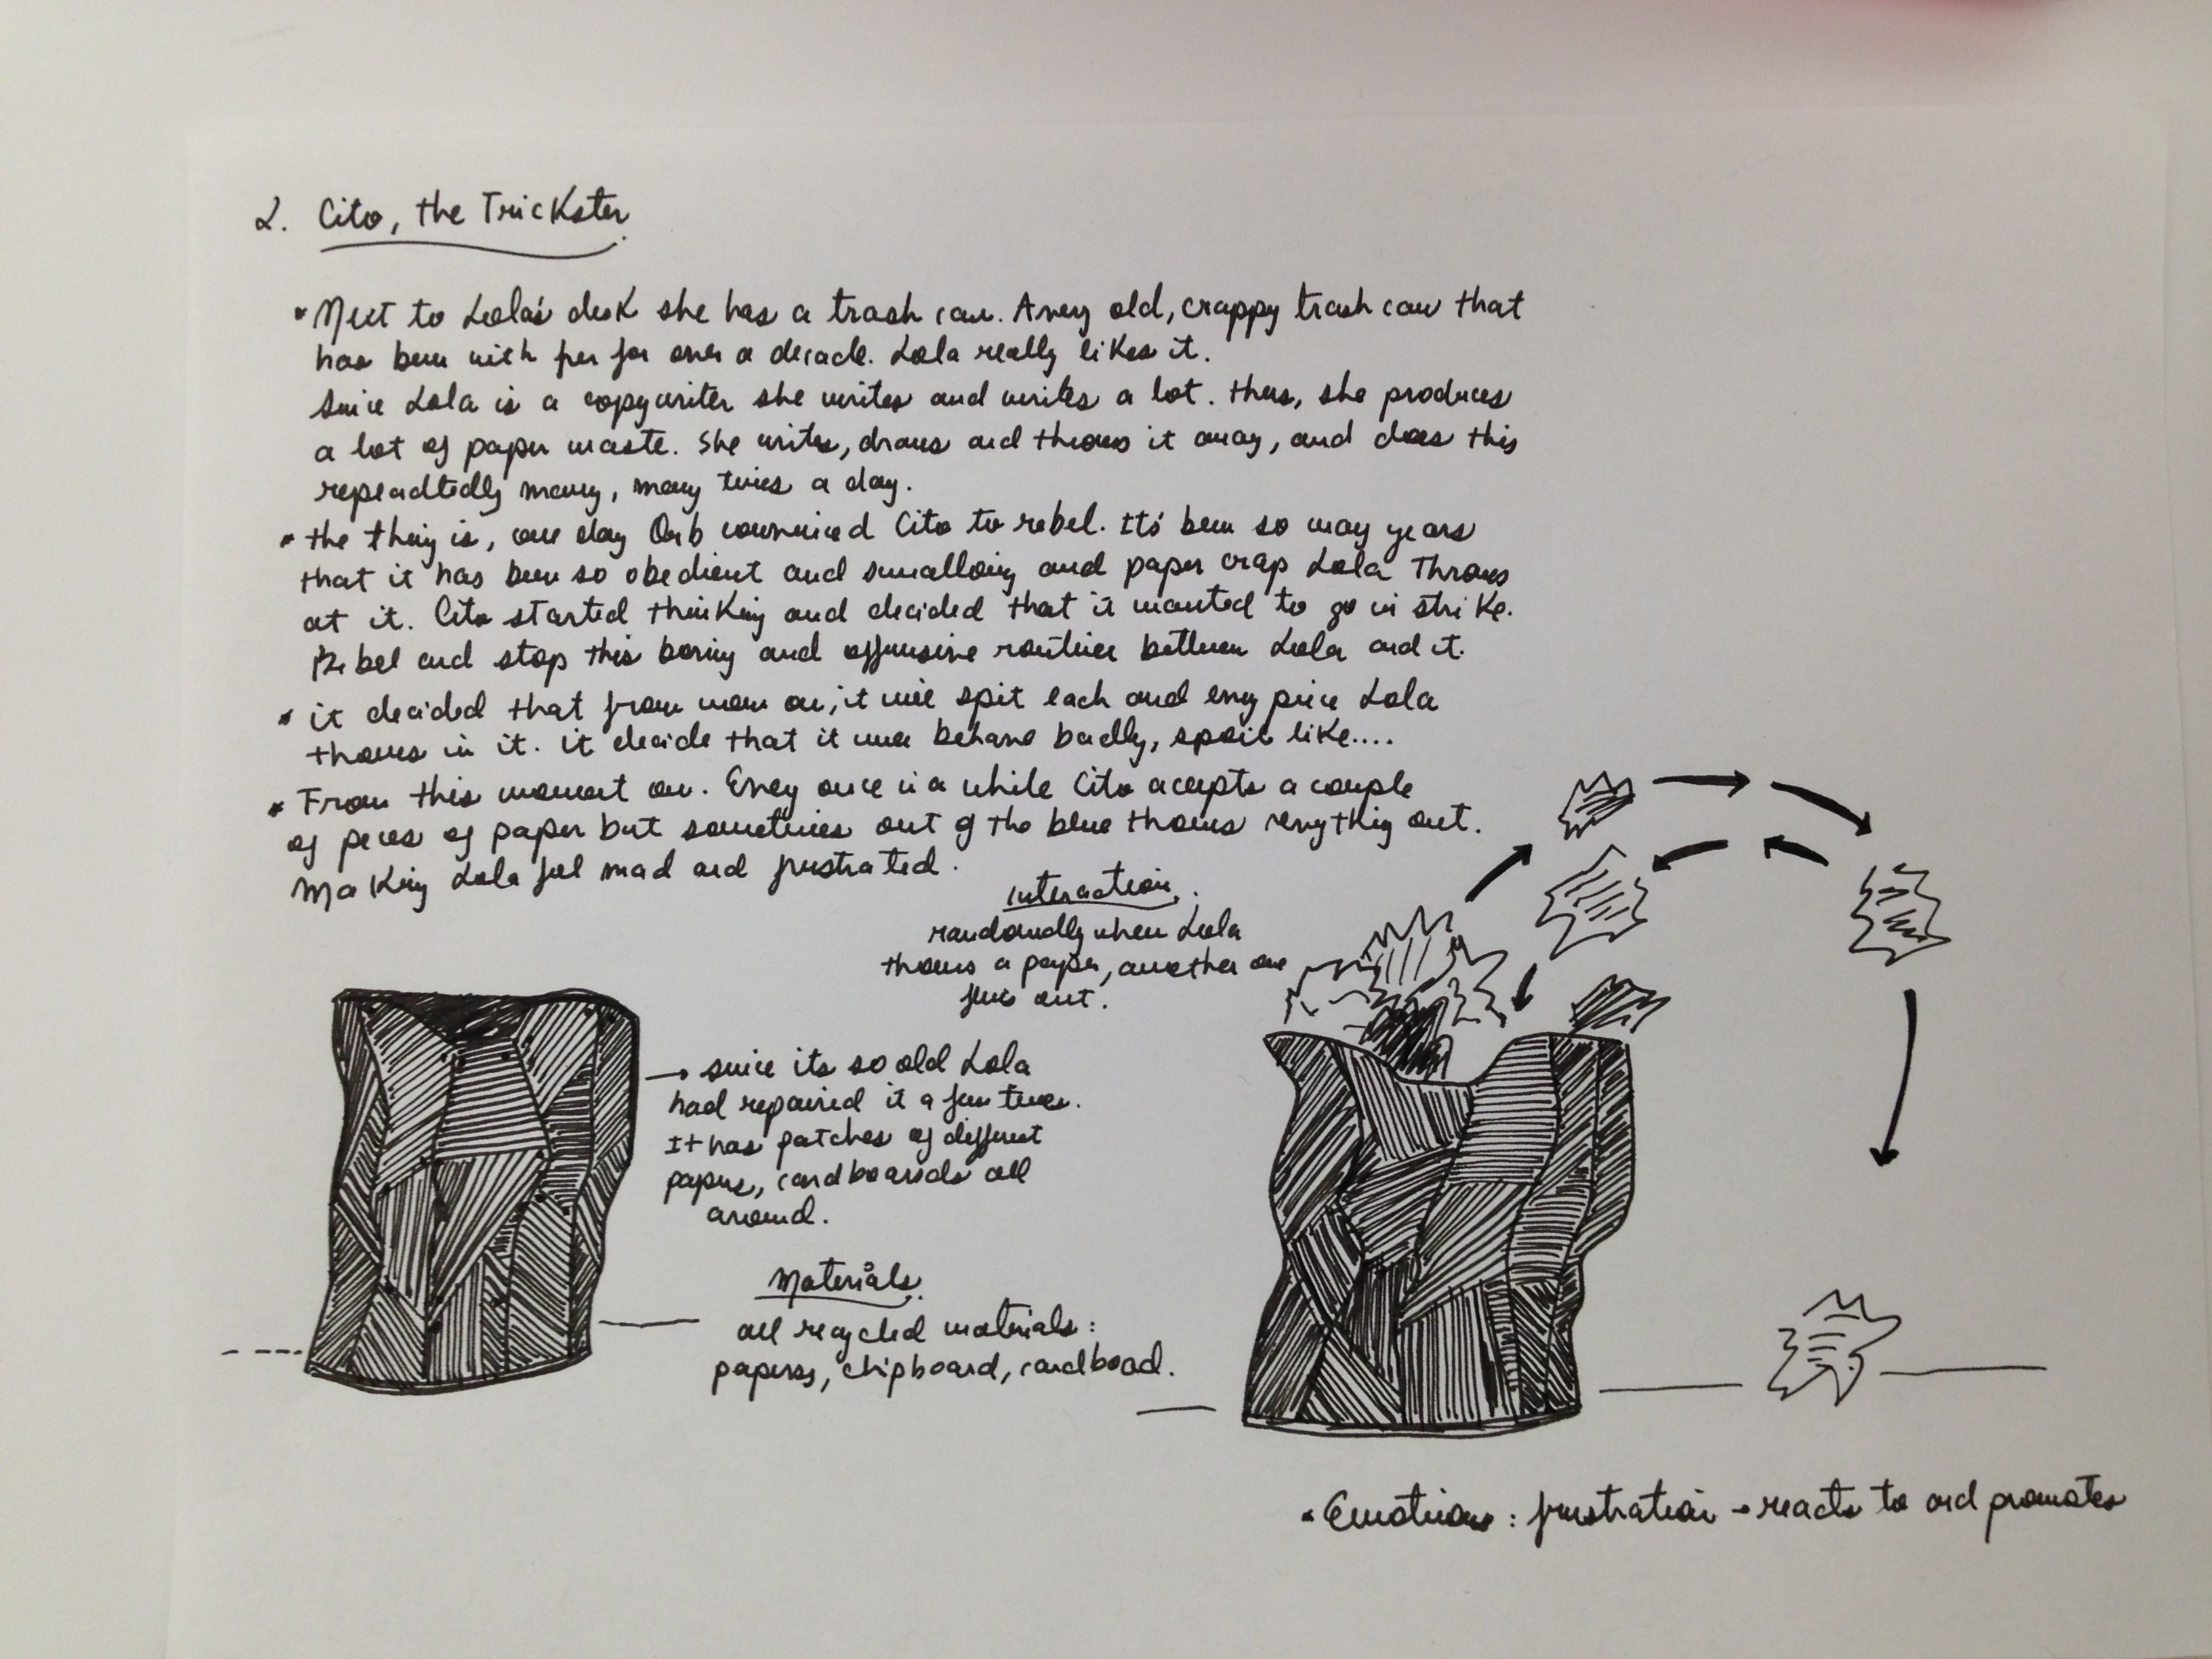 2. Cito, the Trickster.
* Next to Lola's desk she has a trash can. A very old, crappy trash can that
has been with her for over a decade. Lola really likes it.
Since Lola is a copywriter she writes and writes a lot. thus, she produces
a lot of paper waste. She writes, draws and throws it away, and does this
repeadtedly many, many times a day.
* the thing is, one day Orb convinced Cito to rebel. It's been so many years
that it has been so obedient and swallowing and paper crap Lola Throws
at it. Cito started thinking and decided that it wanted to go in strike.
Rebel and stop this boring and offensive routine between Lola and it.
* it decided that from now on, it will spit each and every piece Lola
throws in it. it decide that it will behave badly, spoil like....
* From this moment on. Every once in a while Cito accepts a couple
of pieces of paper but sometimes out of the blue throws everything out.
Making Lola feel mad and frustrated.
interaction:
randomdly when Lola
throws a paper, another one
flies out.
→ since its so old Lola
had repaired it a few times.
It has patches of different
papers, cardboards all
around.
Materials:
all recycled materials:
papers, chipboard, cardboad.
* Emotions: frustration → reacts to and promotes